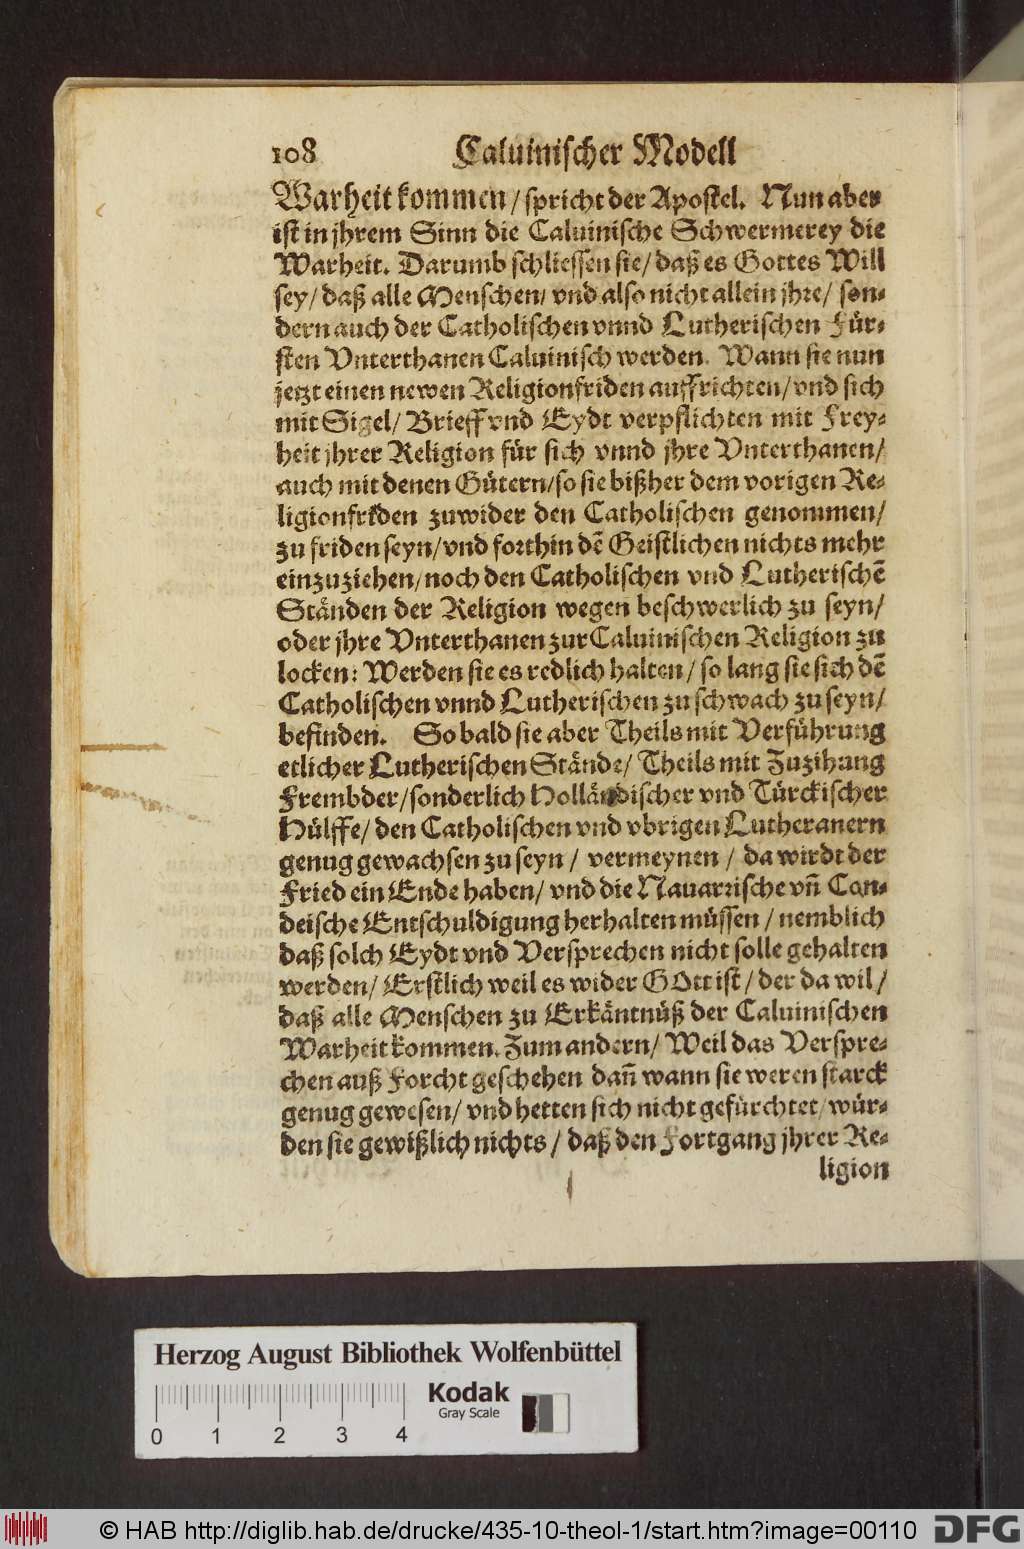 108 Caluinischer Modell
Warheit kommen / spricht der Apostel. Nun aber
ist in jhrem Sinn die Caluinische Schwermerey die
Warheit. Darumb schliessen sie / daß es Gottes Will
sey / daß alle Menschen / vnd also nicht allein jhre / son-
dern auch der Catholischen vnnd Lutherischen Für-
sten Vnterthanen Caluinisch werden. Wann sie nun
jetzt einen newen Religionfriden auffrichten / vnd sich
mit Sigel / Brieff vnd Eydt verpflichten mit Frey-
heit jhrer Religion für sich vnnd jhre Vnterthanen /
auch mit denen Gütern / so sie bißher dem vorigen Re-
ligionfriden zuwider den Catholischen genommen /
zu friden seyn / vnd forthin dē Geistlichen nichts mehr
einzuziehen / noch den Catholischen vnd Lutherischē
Ständen der Religion wegen beschwerlich zu seyn /
oder jhre Vnterthanen zur Caluinischen Religion zu
locken: Werden sie es redlich halten / so lang sie sich dē
Catholischen vnnd Lutherischen zu schwach zu seyn /
befinden. So bald sie aber Theils mit Verführung
etlicher Lutherischen Stände / Theils mit Zuzihung
Frembder / sonderlich Holländischer vnd Türckischer
Hülffe / den Catholischen vnd vbrigen Lutheranern
genug gewachsen zu seyn / vermeynen / da wirdt der
Fried ein Ende haben / vnd die Nauarrische vn̄ Con-
deische Entschuldigung herhalten müssen / nemblich
daß solch Eydt vnd Versprechen nicht solle gehalten
werden / Erstlich weil es wider GOtt ist / der da wil /
daß alle Menschen zu Erkäntnüß der Caluinischen
Warheit kommen. Zum andern / Weil das Verspre-
chen auß Forcht geschehen dan̄ wann sie weren starck
genug gewesen / vnd hetten sich nicht gefürchtet / wür-
den sie gewißlich nichts / daß den Fortgang jhrer Re-
ligion
Herzog August Bibliothek Wolfenbüttel
Kodak
Gray Scale
0 1 2 3 4
© HAB http://diglib.hab.de/drucke/435-10-theol-1/start.htm?image=00110 DFG